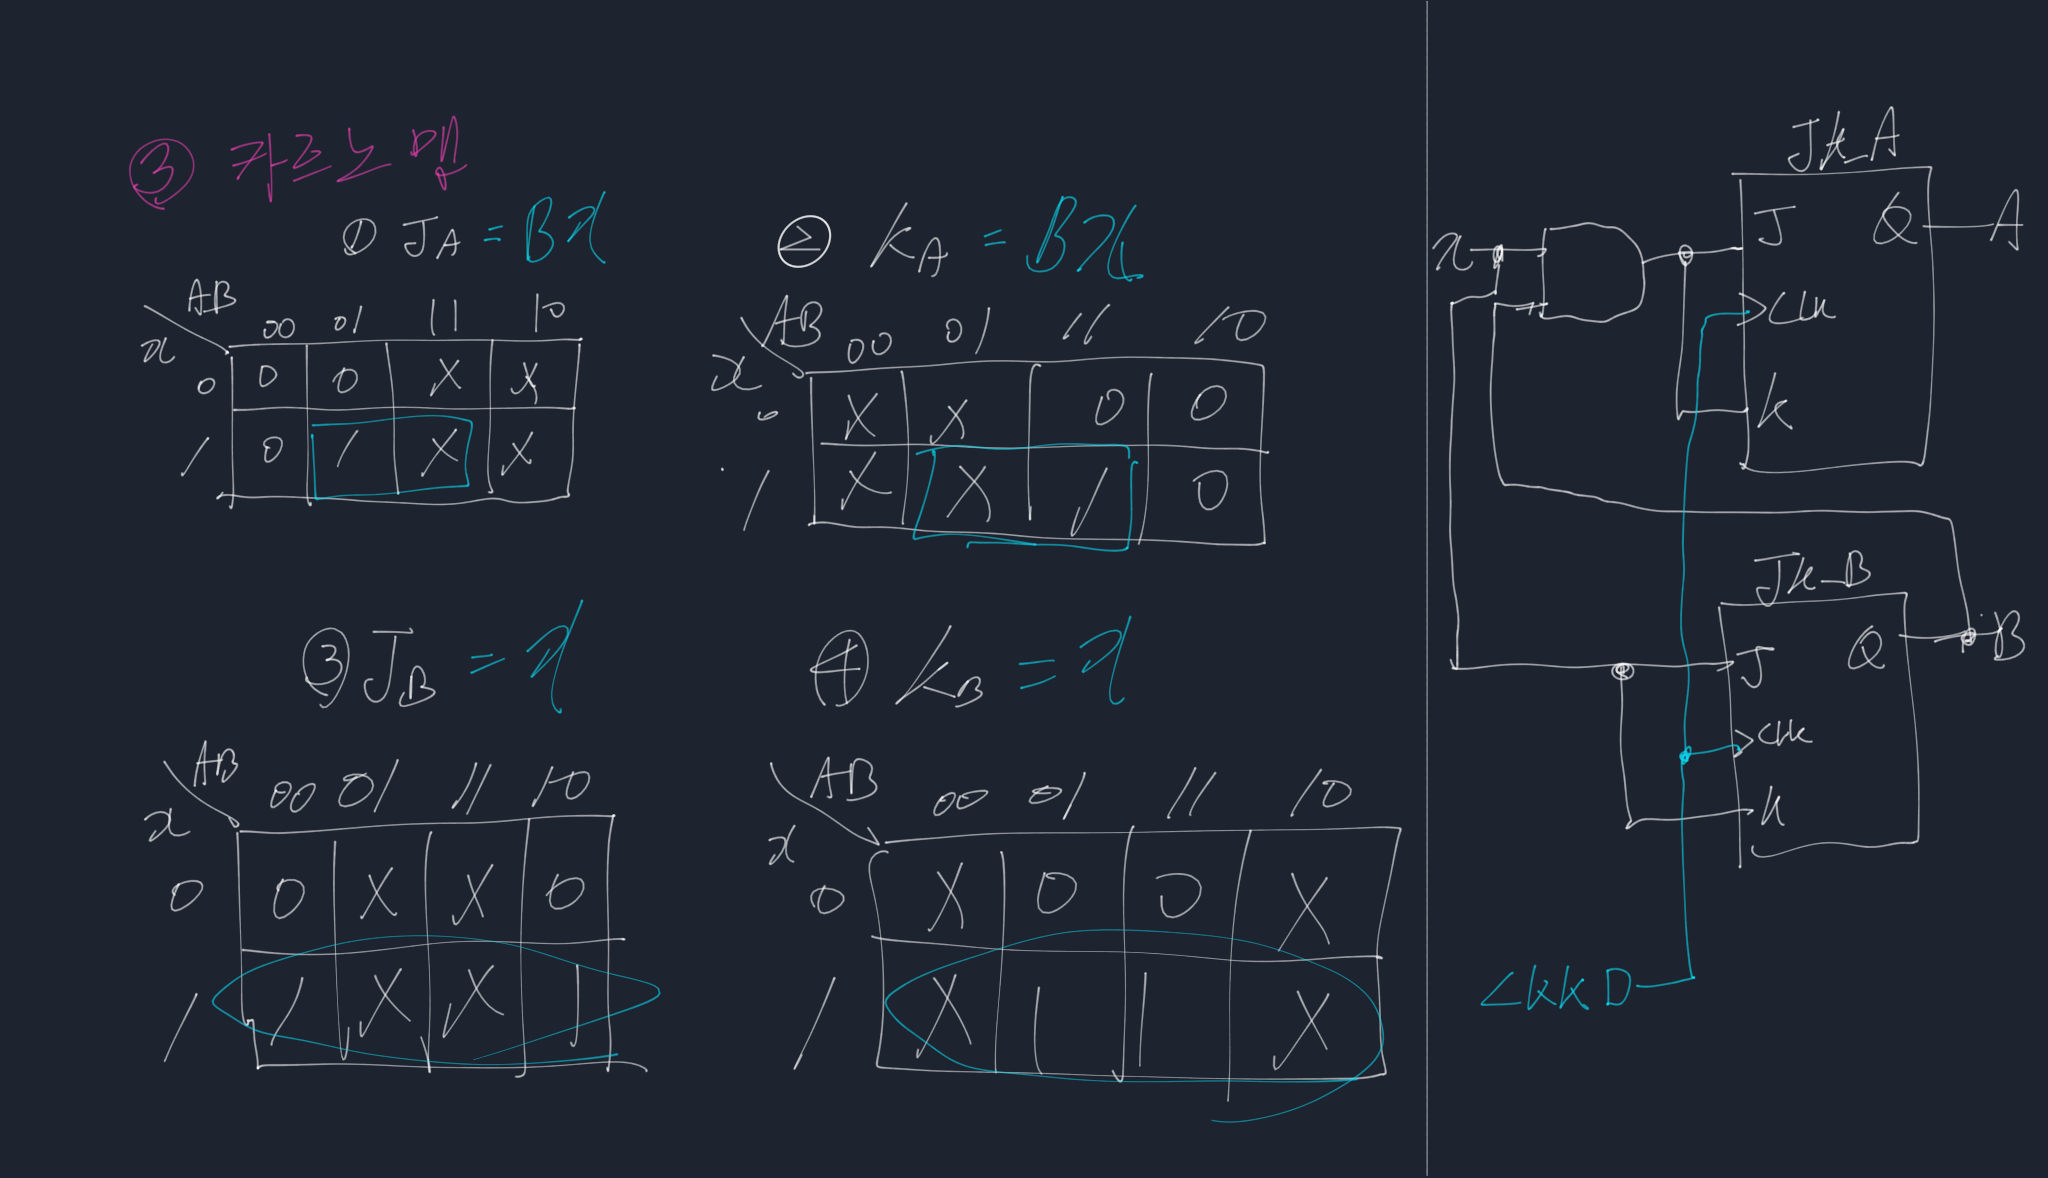 ③ 카르노 맵
① JA = Bx
② kA = Bx
AB 00 01 11 10
x
0 0 0 X X
1 0 1 X X
AB 00 01 11 10
x
0 X X 0 0
1 X X 1 0
③ JB = x
④ kB = x
AB 00 01 11 10
x
0 0 X X 0
1 1 X X 1
AB 00 01 11 10
x
0 X 0 0 X
1 X 1 1 X
JK_A
x
J Q A
CLK
k
JK_B
J Q B
CLK
k